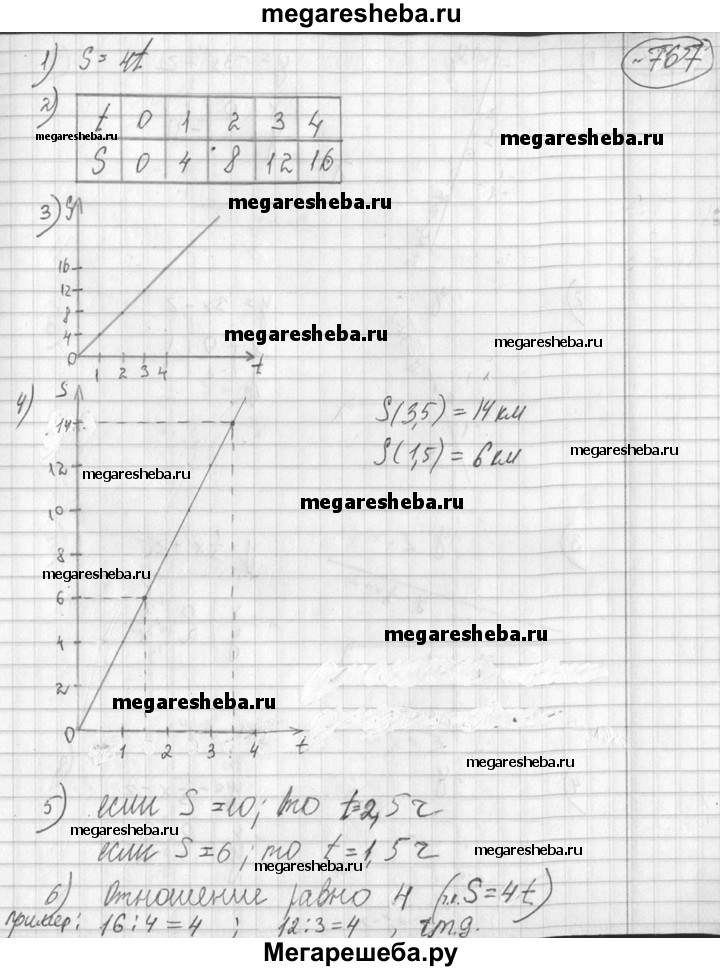 megaresheba.ru
1) S = 4t
№767
2) t 0 1 2 3 4
megaresheba.ru
megaresheba.ru
S 0 4 8 12 16
megaresheba.ru
3) S
16
12
8
megaresheba.ru
megaresheba.ru
4
0 1 2 3 4 t
4) S
14
S(3,5) = 14 км
S(1,5) = 6 км
megaresheba.ru
12
megaresheba.ru
megaresheba.ru
10
8
megaresheba.ru
6
megaresheba.ru
4
2
megaresheba.ru
0 1 2 3 4 t
megaresheba.ru
5) если S = 10; то t = 2,5 ч
megaresheba.ru
если S = 6; то t = 1,5 ч
megaresheba.ru
megaresheba.ru
6) Отношение равно 4 (т.к. S = 4t)
пример: 16 : 4 = 4 ; 12 : 3 = 4 , т.д.
Мегарешеба.ру